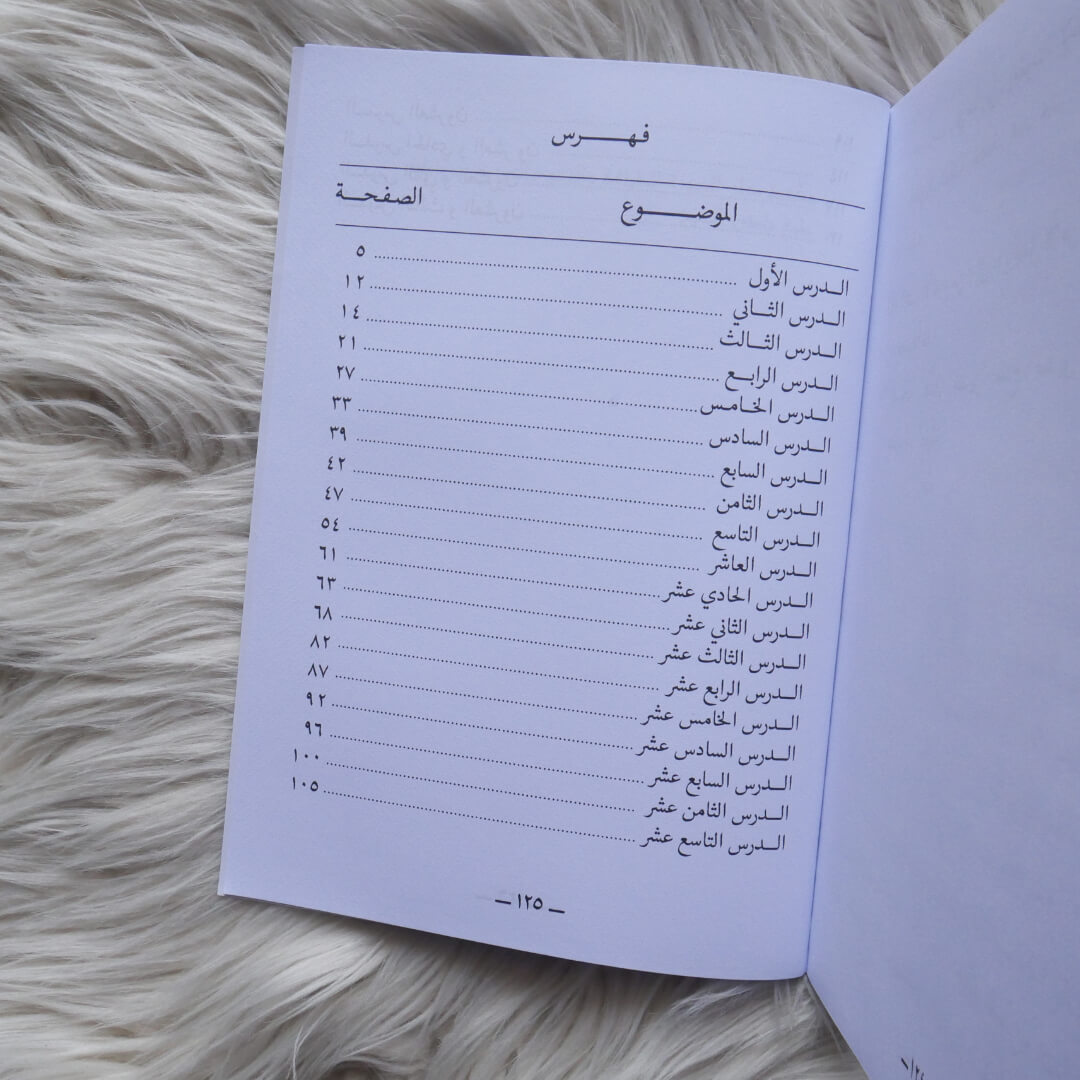 فهـــرس
الموضـــوع الصفحـة
الـدرس الأول ........ ٥
الـدرس الثـاني ........ ١٢
الـدرس الثـالث ........ ١٤
الـدرس الرابـع ........ ٢١
الـدرس الخامس ........ ٢٧
الـدرس السادس ........ ٣٣
الـدرس السابع ........ ٣٩
الـدرس الثامن ........ ٤٢
الـدرس التاسع ........ ٤٧
الـدرس العاشر ........ ٥٤
الـدرس الحادي عشر ........ ٦١
الـدرس الثاني عشر ........ ٦٣
الـدرس الثالث عشر ........ ٦٨
الـدرس الرابع عشر ........ ٨٢
الـدرس الخامس عشر ........ ٨٧
الـدرس السادس عشر ........ ٩٢
الـدرس السابع عشر ........ ٩٦
الـدرس الثامن عشر ........ ١٠٠
الـدرس التاسع عشر ........ ١٠٥
ـ ١٢٥ ـ